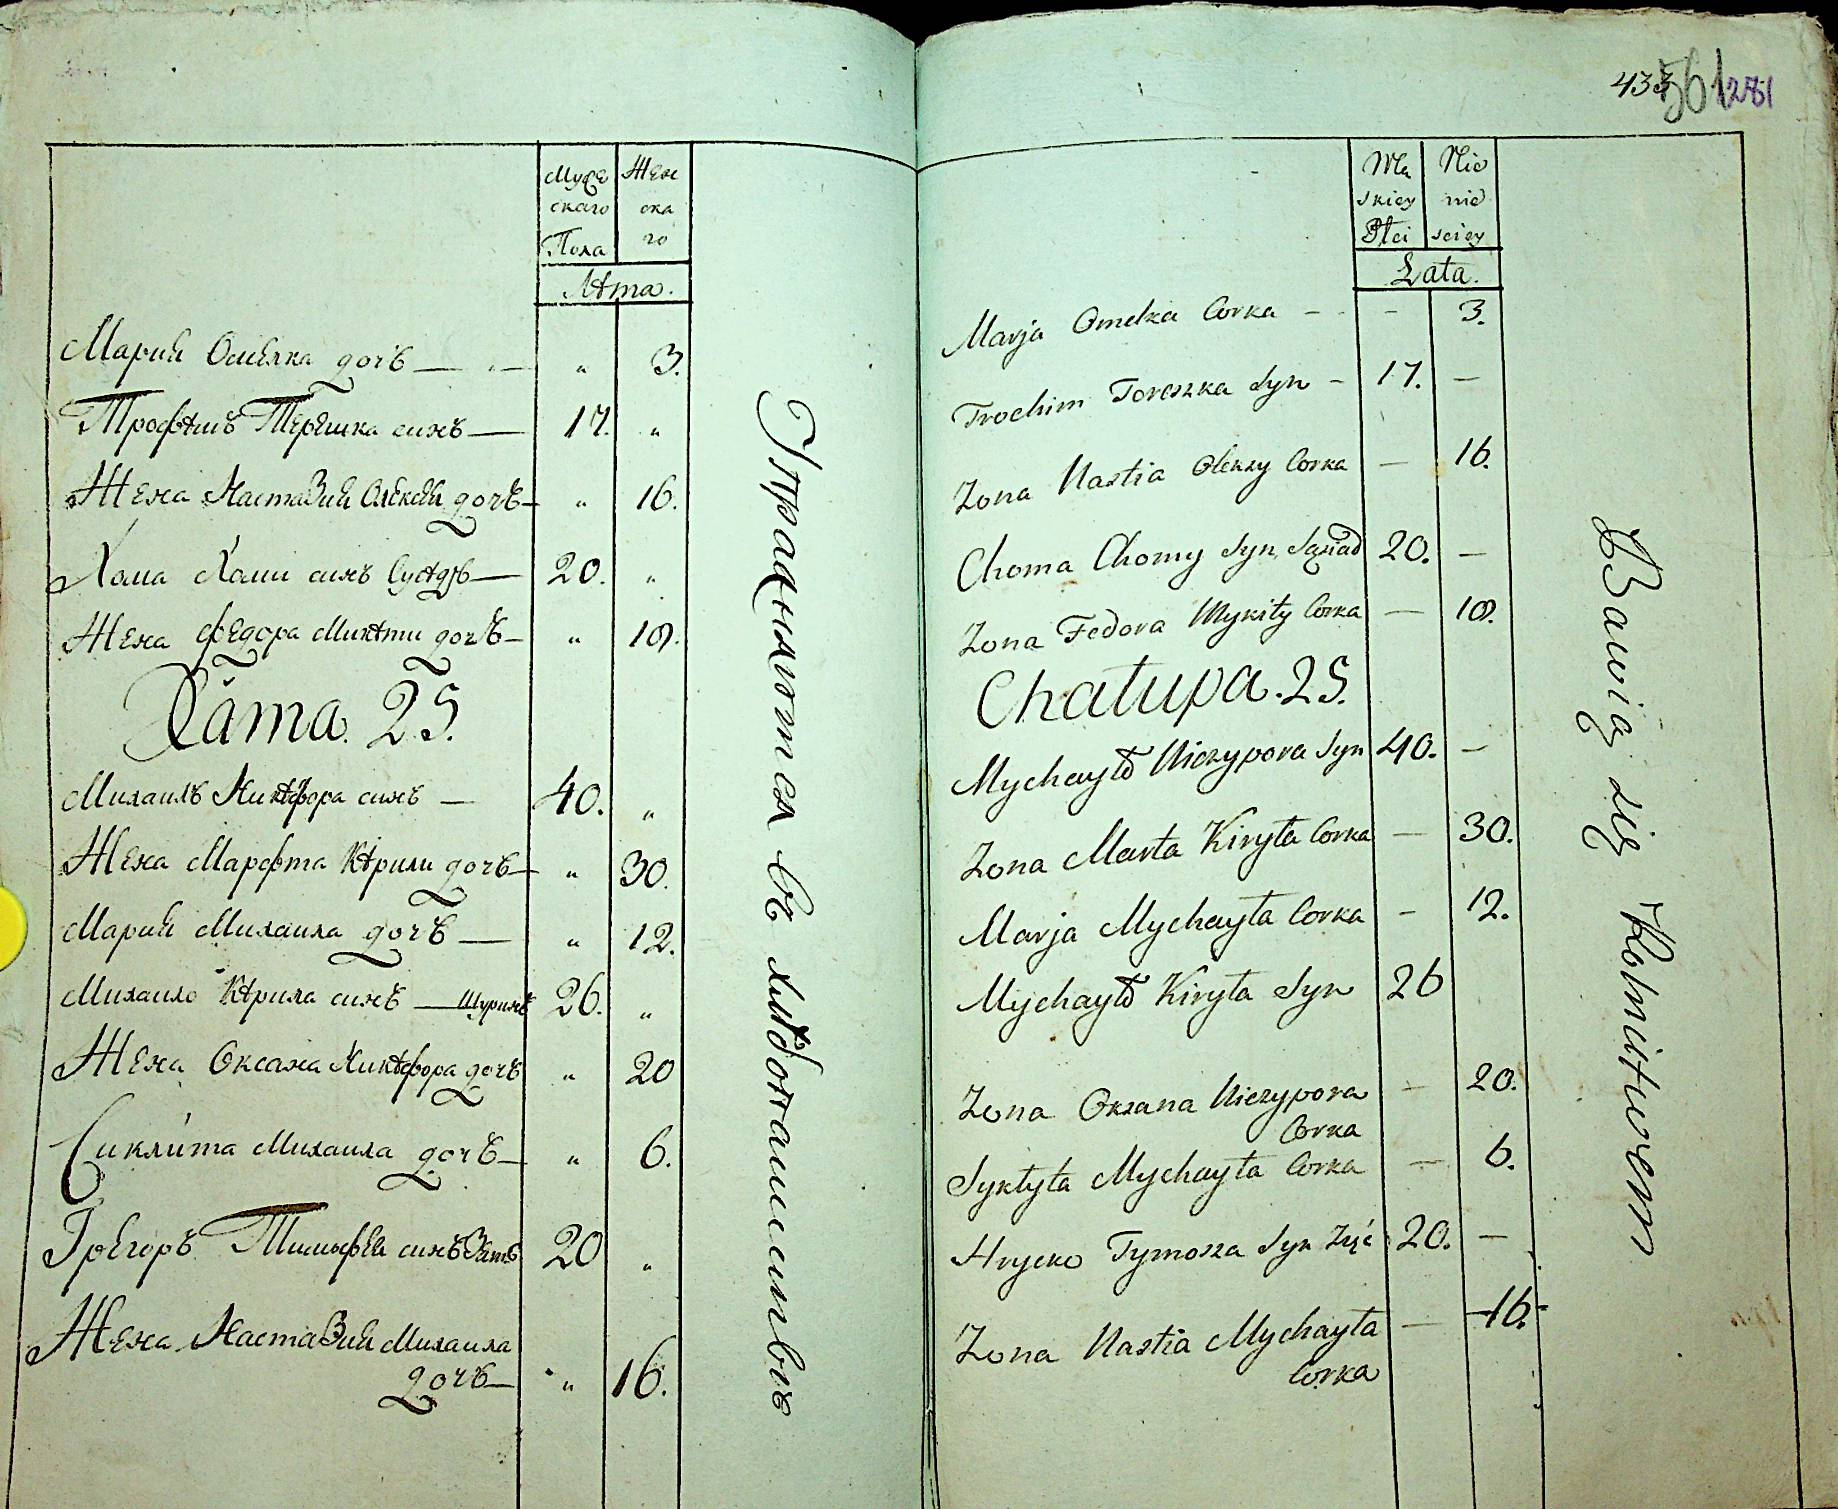 Муже Жен
скаго ска
Пола го
Лѣта.
Марий Омелка дочь — " 3.
Трофѣмъ Терешка синъ — 17. "
Жена Настазий Олексѣй дочь — " 16.
Хома Хоми синъ Сусѣдъ — 20. "
Жена Федора Микѣти дочь — " 18.
Хата. 25.
Михаилъ Никѣфора синъ — 40. "
Жена Марфта Кѣрили дочь — " 30.
Марий Михаила дочь — " 12.
Михаило Кѣрила синъ — Шуринъ 26. "
Жена Оксана Никѣфора дочь " 20
Сикли́та Михаила дочь — " 6.
Грегоръ Тимофѣй синъ Зять 20 "
Жена Настазий Михаила
дочь — " 16.
Упражняются въ хлѣбопашишвѣ
433 561 281
Mę Nie
skiey wie
Płci sciey
Lata.
Marja Omelka Corka – – 3.
Trochim Toreszka Syn – 17. –
Zona Nastia Olexy Corka – 16.
Choma Chomy Syn Sąsiad 20. –
Zona Fedora Mykity Corka – 18.
Chałupa. 25.
Mychayło Niczypora Syn 40. –
Zona Marta Kiryła Corka – 30.
Marja Mychayła Corka – 12.
Mychayło Kiryła Syn 26
Zona Oxana Niczypora – 20.
Corka
Sykłyta Mychayła Corka – 6.
Hrycko Tymosza Syn Zięć 20. –
Zona Nastia Mychayła – 16.
Corka
Bawią się Rolnictwem